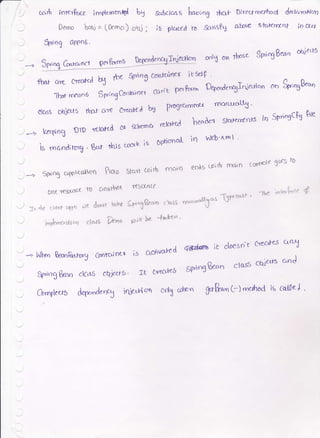 with interface implemented by subclass having that Direct method declaration
Demo bobj = (Demo) obj ; is placed to satisfy above statement in our
Spring appns.
→ Spring Container performs Dependency Injection only on those SpringBean objects
that are created by the Spring container itself.
That means SpringContainer can't perform DependencyInjection on SpringBean
class objects that are created by programmer manually.
→ keeping DTD related or schema related header statements in SpringCfg file
is manditory. But this work is optional in web.xml.
→ Spring application Flow start with main ends with main
one resource to another resource
In the client appn we don't take SpringBean class manually as Typecast. The interface of
implementation class Demo will be taken.
→ When BeanFactory container is activated it doesn't creates any
SpringBean class objects. It creates springBean class objects and
Completes dependency injection only when getBean(-) method is called.